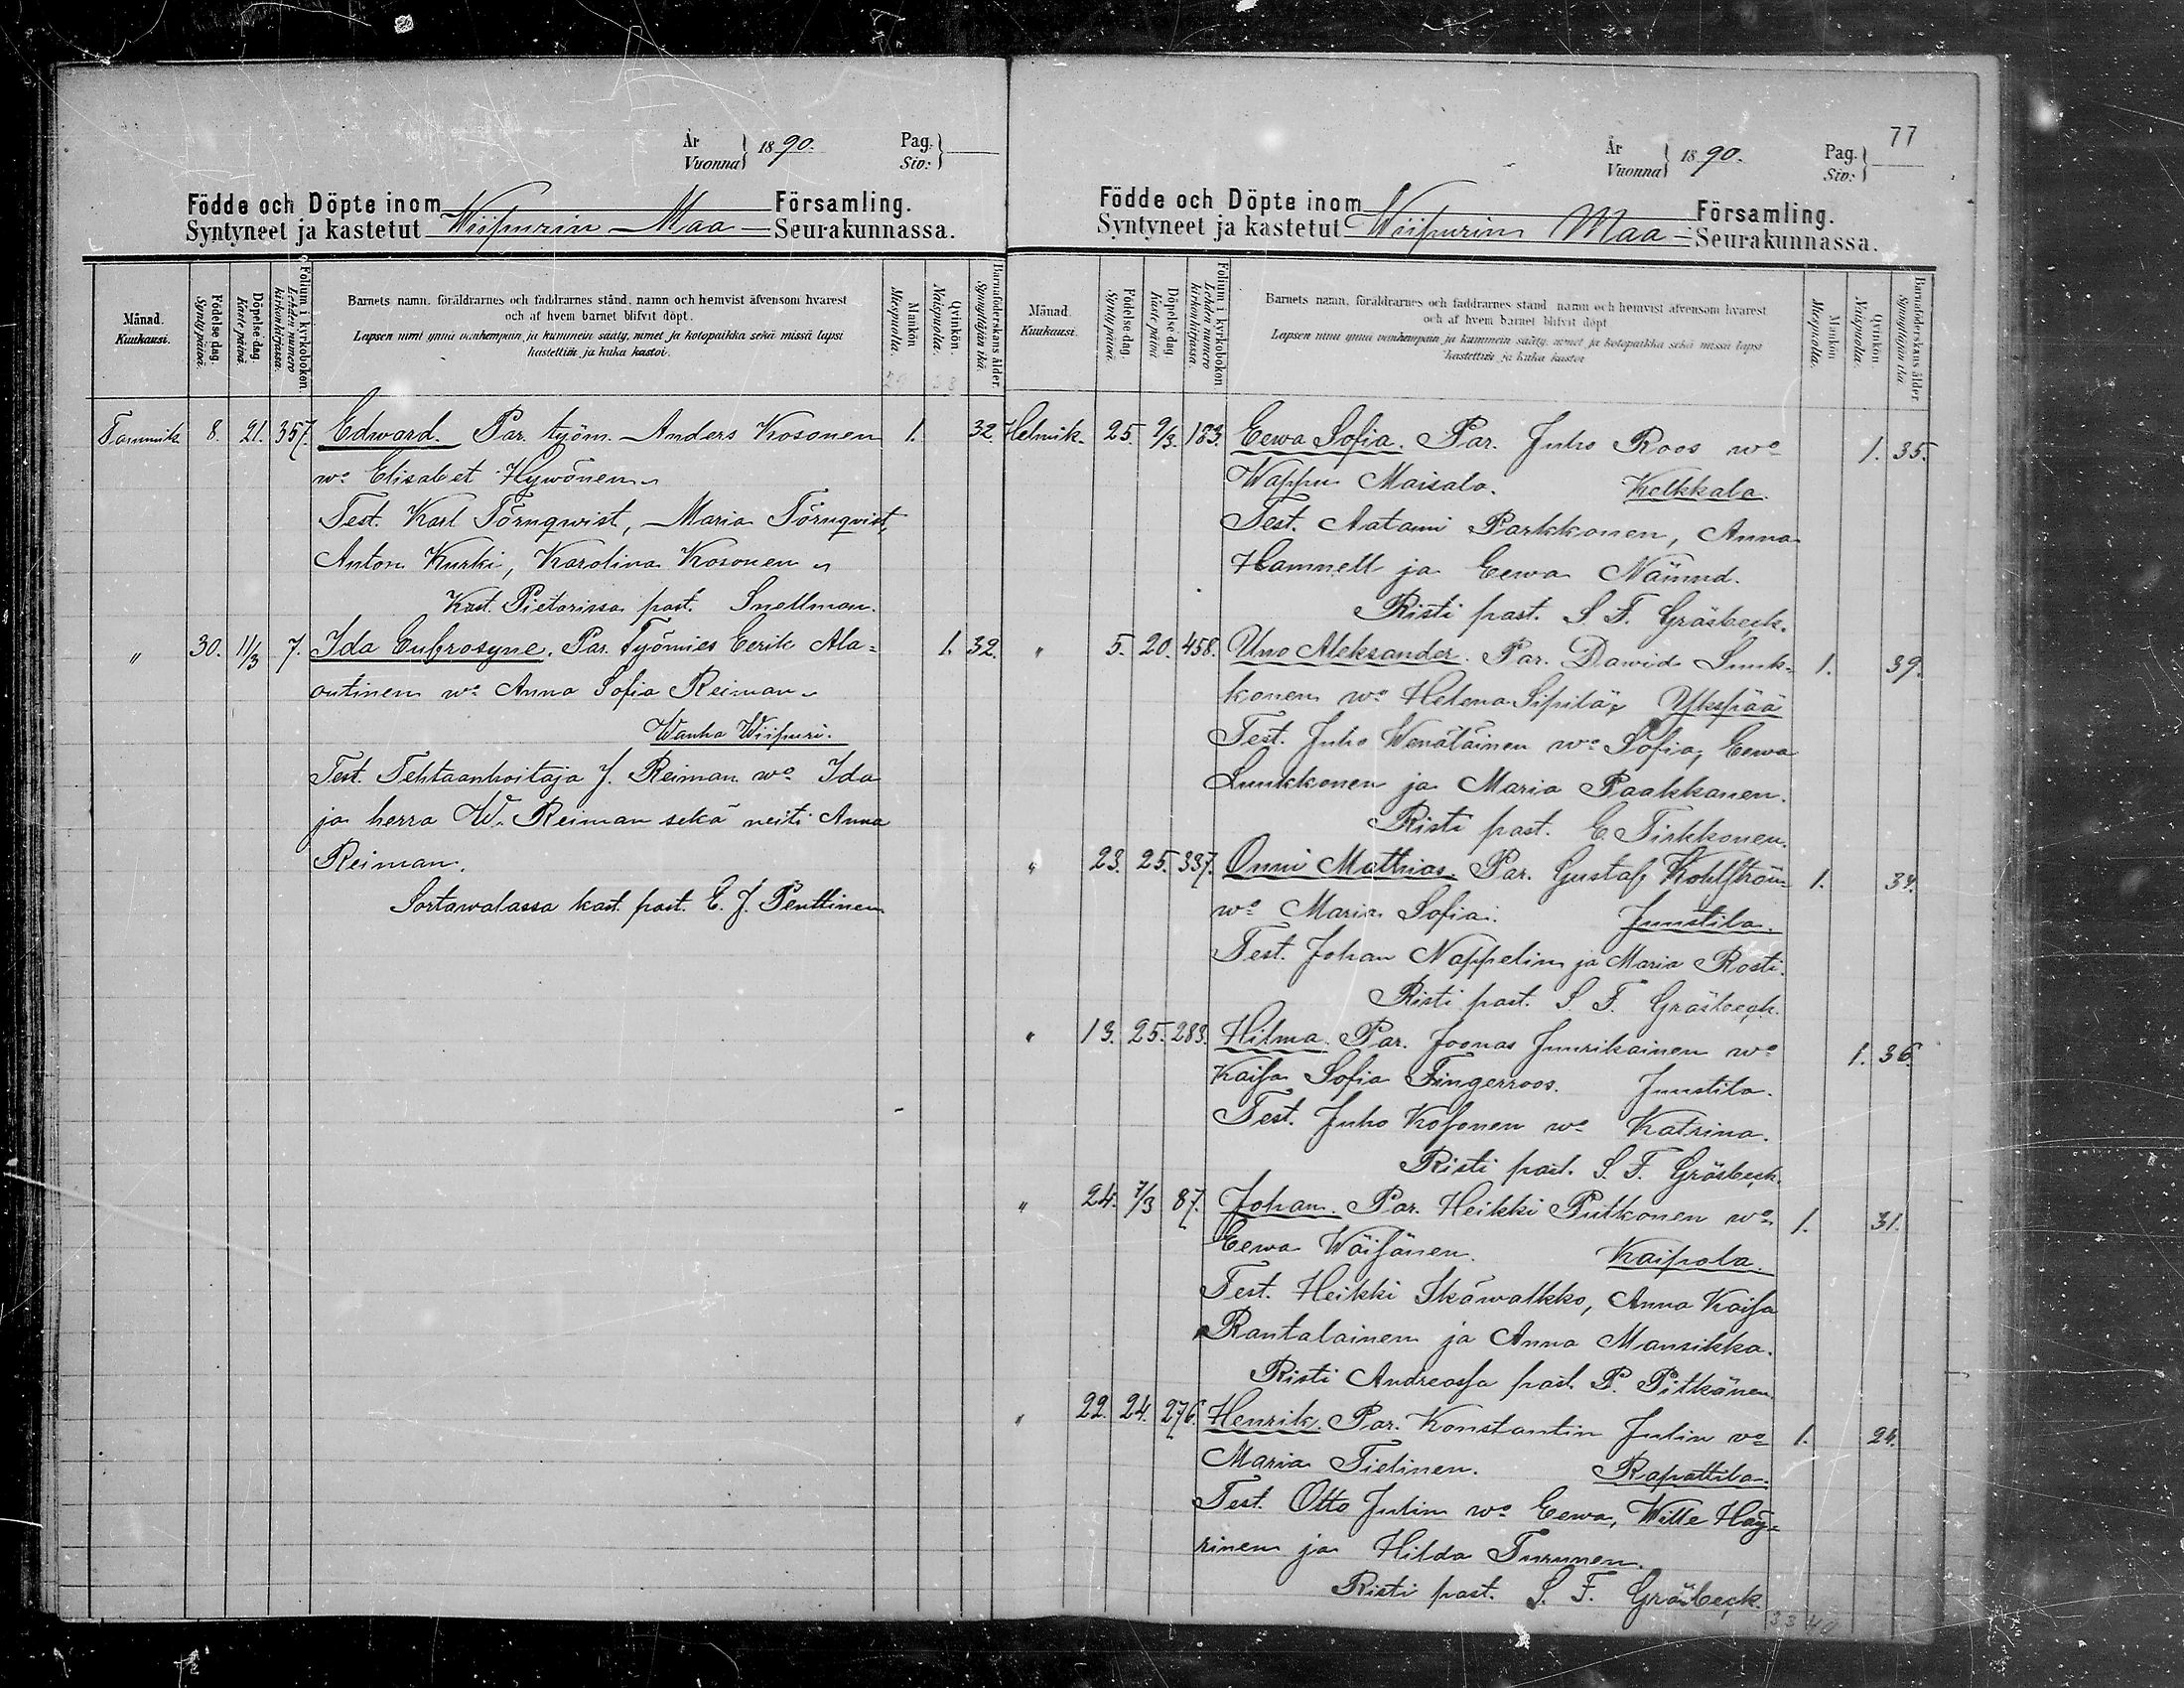 År
Vuonna } 1890.
Pag.
Siv: }
Födde och Döpte inom Församling.
Syntyneet ja kastetut Wiipurin Maa Seurakunnassa.
Månad.
Kuukausi.
Födelse-dag.
Synty päivä.
Döpelse-dag.
Kaste päivä.
Folium i kyrkoboken.
Lehden numero
kirkonkirjassa.
Barnets namn, föräldrarnes och faddrarnes stånd, namn och hemvist äfvensom hvarest
och af hvem barnet blifvit döpt.
Lapsen nimi ynnä vanhempain ja kummein sääty, nimet ja kotopaikka sekä missä lapsi
kastettiin ja kuka kastoi.
Mankön.
Miespuolta.
Qvinkön.
Naispuolta.
Barnaföderskans ålder.
Synnyttäjän ikä.
Tammik. 8. 21. 357. Edward. Par. työm. Anders Kosonen 1. 32.
wo Elisabet Hywönen
Test. Karl Törnqwist, Maria Törnqvist,
Anton Kurki, Karolina Kosonen
Kast. Pietarissa past. Snellman.
" 30. 11/3 7. Ida Eufrosyne. Par. Työmies Eerik Ala= 1. 32.
outinen wo Anna Sofia Reiman
Wanha Wiipuri.
Test. Tehtaanhoitaja J. Reiman wo Ida
ja herra W. Reiman sekä neiti Anna
Reiman.
Sortawalassa kast. past. E. J. Penttinen
77
År
Vuonna } 1890.
Pag.
Siv: }
Födde och Döpte inom Församling.
Syntyneet ja kastetut Wiipurin Maa Seurakunnassa.
Månad.
Kuukausi.
Födelse dag.
Synty päivä.
Döpelse dag
Kaste päivä
Folium i kyrkoboken
Lehden numero
kirkonkirjassa.
Barnets namn, föräldrarnes och faddrarnes stånd namn och hemvist äfvensom hvarest
och af hvem barnet blifvit döpt
Lapsen nimi ynnä vanhempain ja kummein sääty, nimet ja kotopaikka sekä missä lapsi
kastettiin ja kuka kastoi
Mankön.
Miespuolta.
Qvinkön
Naispuolta.
Barnaföderskans ålder
Synnyttäjän ikä.
Helmik. 25. 9/3. 183. Eewa Sofia. Par. Juho Roos wo 1. 35.
Wappu Maisala. Kelkkala.
Test. Aatami Parkkonen, Anna
Hamnell ja Eewa
Risti past. S. F. Gräsbeck.
" 5. 20. 458. Uno Aleksander. Par. Dawid Lunk- 1. 39.
konen wo Helena Sipilä, Ykspää
Test. Juho Wenäläinen wo Sofia, Eewa
Lunkkonen ja Maria Paakkanen.
Risti past. E. Tirkkonen.
" 23. 25. 337. Onni Mathias. Par. Gustaf Kohlström 1. 34.
wo Maria Sofia. Juustila.
Test. Johan Nappelin ja Maria Rosti.
Risti past. S. F. Gräsbeck.
" 13. 25. 283. Hilma. Par. Joonas Juurikainen wo 1. 36.
Kaisa Sofia Fingerroos. Juustila.
Test. Juho Kosonen wo Katrina.
Risti past. S. F. Gräsbeck.
" 24. 7/3 87. Johan. Par. Heikki Putkonen wo 1. 31.
Eewa Wäisänen. Kaipola.
Test. Heikki Ikäwalkko, Anna Kaisa
Rantalainen ja Anna Mansikka.
Risti Andreassa past. P. Pitkänen
" 22. 24. 276. Henrik. Par. Konstantin Julin wo 1. 24.
Maria Tielinen. Rapattila.
Test. Otto Julin wo Eewa, Wille Häy=
rinen ja Hilda Turunen.
Risti past. S. F. Gräsbeck.
33 40